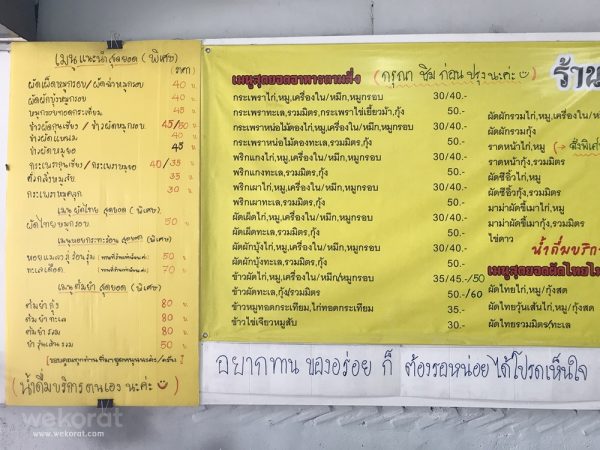 เมนูแนะนำสุดยอด (พิเศษ)
(ราคา)
ผัดเผ็ดหมูกรอบ/ผัดคะน้าหมูกรอบ 40 บ
ผัดผักบุ้งหมูกรอบ 40 บ
หมูกรอบทอดกระเทียม 45 บ
ข้าวผัดกุนเชียง / ข้าวผัดหมูกรอบ 45/50 บ
ข้าวผัดแหนม 40 บ
ข้าวผัดหมูยอ 45 บ
กระเพรากุนเชียง / กระเพราหมูยอ 40/35 บ
35 บ
กระเพราหมูคลุก 30 บ
เมนูผัดไทย สุดยอด (พิเศษ)
ผัดไทยหมูกรอบ 50 บ
เมนูหอยกระทะร้อนสุดยอด (พิเศษ)
หอยแมลงภู่ร้อนรุม (ทานที่ร้านเท่านั้นนะค่ะ) 50 บ
ทะเลเดือด (ทานที่ร้านเท่านั้นนะค่ะ) 70 บ
เมนูต้มยำ สุดยอด (พิเศษ)
ต้มยำกุ้ง 80 บ
ต้มยำทะเล 80 บ
ต้มยำรวม 80 บ
ยำวุ้นเส้นรวม 50 บ
(ขอบคุณทุกท่านที่มาอุดหนุนนะค่ะ/ครับ)
(น้ำดื่มบริการตนเอง นะค่ะ)
เมนูสุดยอดอาหารตามสั่ง (กรุณา ชิม ก่อน ปรุง นะค่ะ)
กระเพราไก่,หมู,เครื่องใน/หมึก,หมูกรอบ 30/40.-
กระเพราทะเล,รวมมิตร,กระเพราไข่เยี่ยวม้า,กุ้ง 50.-
กระเพราหน่อไม้ดองไก่,หมู,เครื่องใน/หมึก,หมูกรอบ 30/40.-
กระเพราหน่อไม้ดองทะเล,รวมมิตร,กุ้ง 50.-
พริกแกงไก่,หมู,เครื่องใน/หมึก,หมูกรอบ 30/40.-
พริกแกงทะเล,รวมมิตร,กุ้ง 50.-
พริกเผาไก่,หมู,เครื่องใน/หมึก,หมูกรอบ 30/40.-
พริกเผาทะเล,รวมมิตร,กุ้ง 50.-
ผัดเผ็ดไก่,หมู,เครื่องใน/หมึก,หมูกรอบ 30/40.-
ผัดเผ็ดทะเล,รวมมิตร,กุ้ง 50.-
ผัดผักบุ้งไก่,หมู,เครื่องใน/หมึก,หมูกรอบ 30/40.-
ผัดผักบุ้งทะเล,รวมมิตร,กุ้ง 50.-
ข้าวผัดไก่,หมู,เครื่องใน/หมึก/หมูกรอบ 35/45.-/50
ข้าวผัดทะเล,กุ้ง/รวมมิตร 50.-/60
ข้าวหมูทอดกระเทียม,ไก่ทอดกระเทียม 35.-
ข้าวไข่เจียวหมูสับ 30.-
ร้าน
ผัดผักรวมไก่,หมู,เครื่อง
ผัดผักรวมกุ้ง
ราดหน้าไก่,หมู (→ สั่งพิเศษ
ราดหน้ากุ้ง,รวมมิตร
ผัดซีอิ้วไก่,หมู
ผัดซีอิ้วกุ้ง,รวมมิตร
มาม่าผัดขี้เมาไก่,หมู
มาม่าผัดขี้เมากุ้ง,รวมมิตร
ไข่ดาว
น้ำดื่มบริกา
เมนูสุดยอดผัดไทยไร
ผัดไทยไก่,หมู/กุ้งสด
ผัดไทยวุ้นเส้นไก่,หมู/กุ้งสด
ผัดไทยรวมมิตร/ทะเล
อยากทาน ของอร่อย ก็ ต้องรอหน่อย ได้โปรดเห็นใจ
wekorat
www.wekorat.com